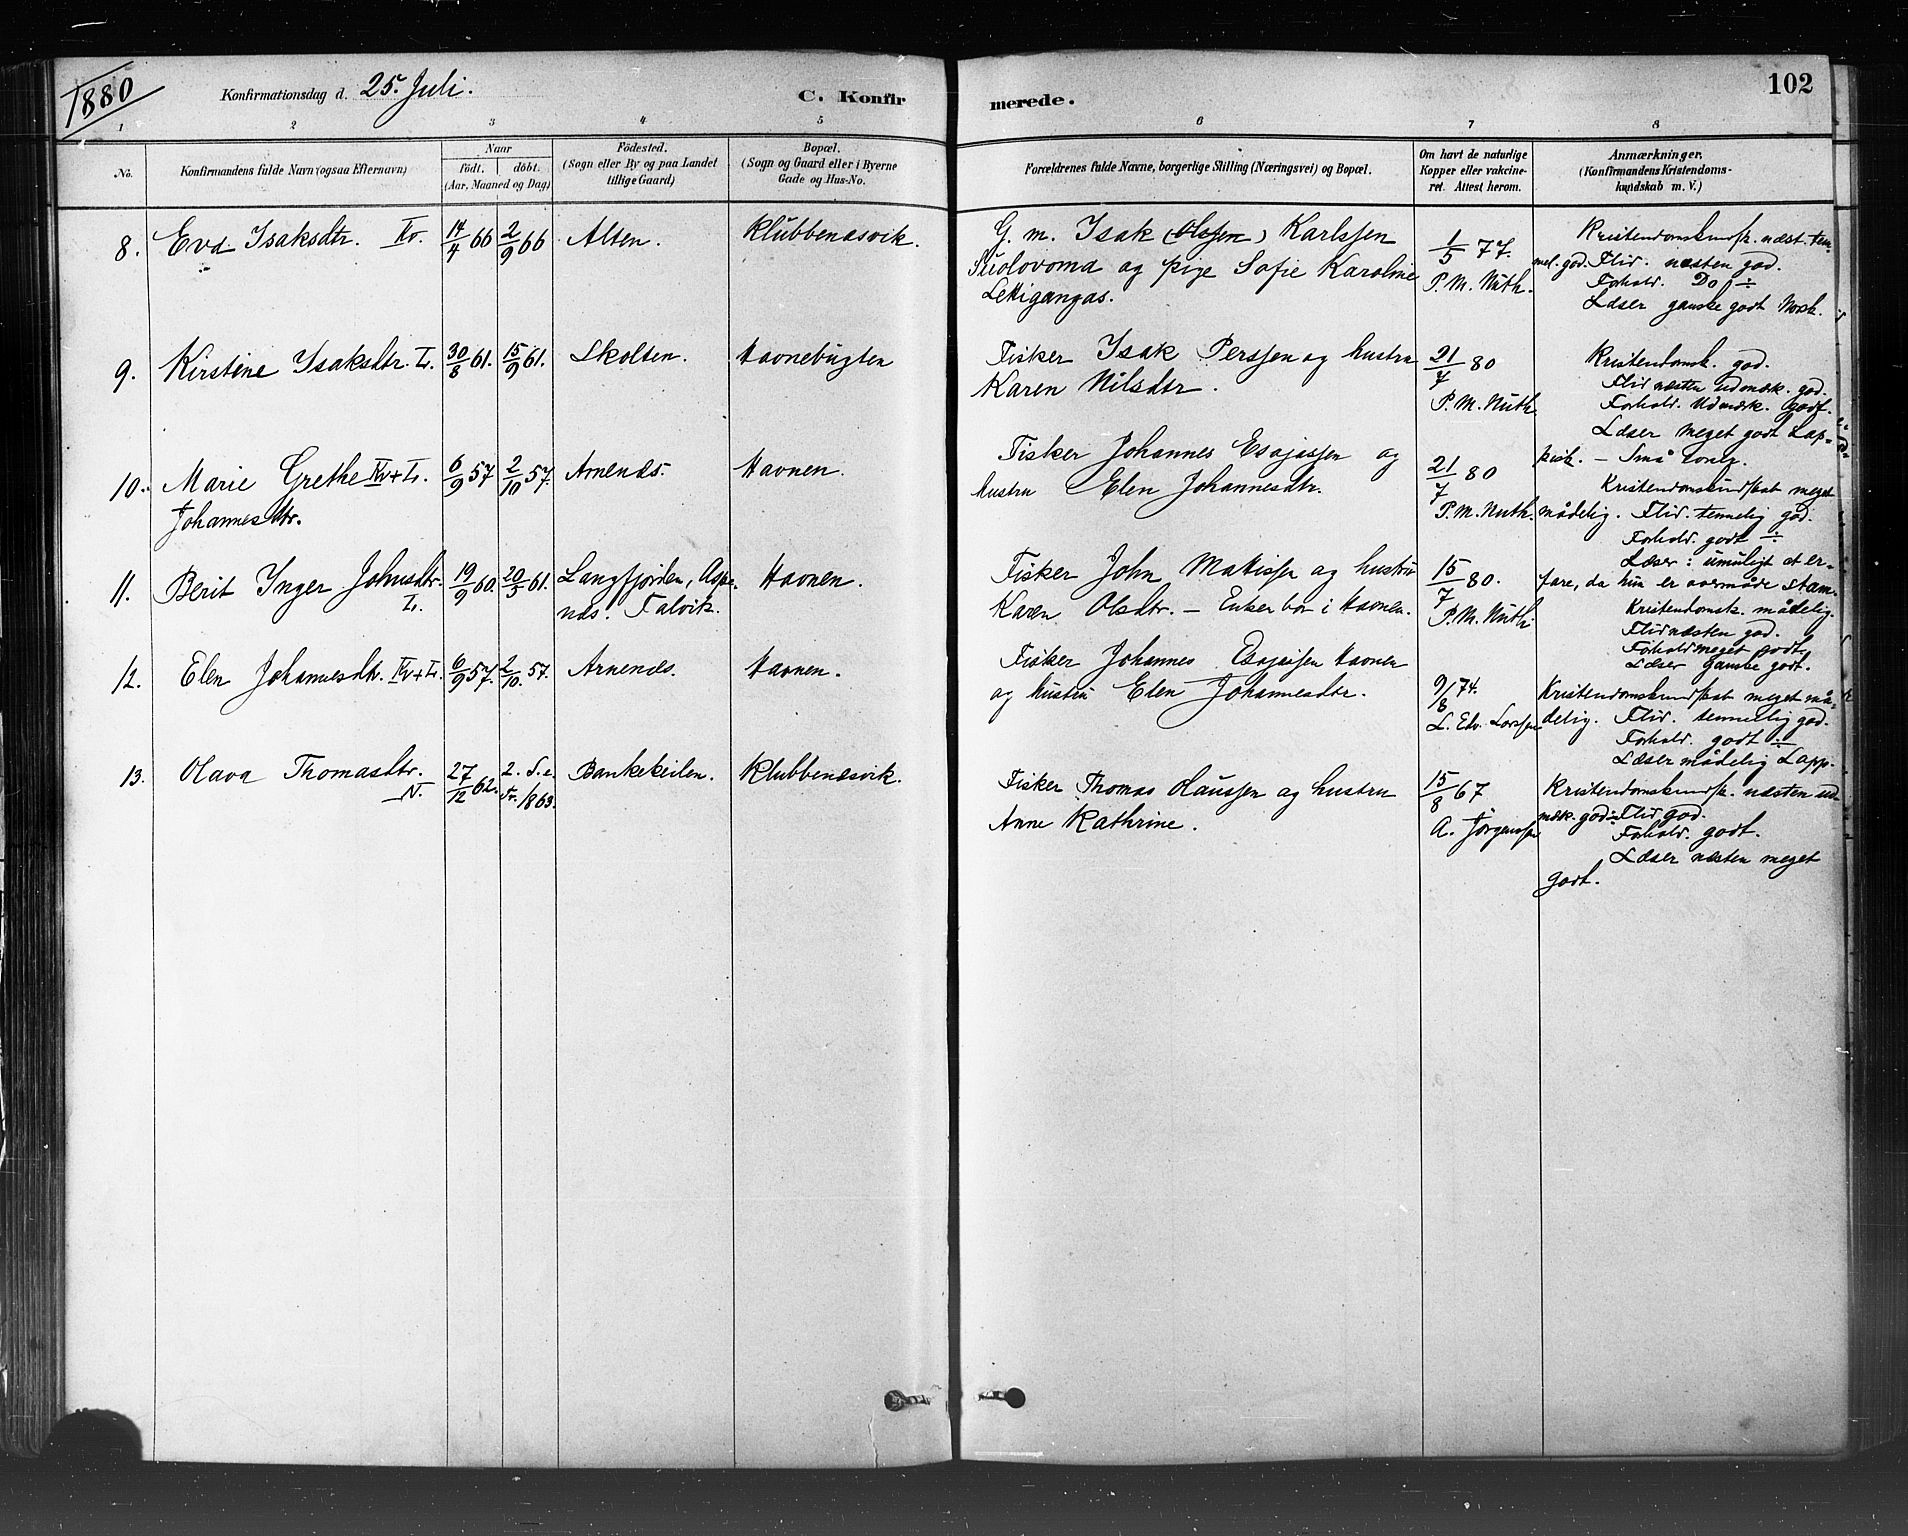 1880
Konfirmationsdag d. 25. Juli.
C. Konfirmerede.
102
1 2 3 4 5 6 7 8
No.
Konfirmandens fulde Navn (ogsaa Efternavn)
Naar
födt. döbt.
(Aar, Maaned og Dag)
Födested.
(Sogn eller By og paa Landet
tillige Gaard)
Bopæl.
(Sogn og Gaard eller i Byerne
Gade og Hus-No.
Forældrenes fulde Navne, borgerlige Stilling (Næringsvei) og Bopæl.
Om havt de naturlige
Kopper eller vakcine-
ret. Attest herom.
Anmærkninger.
(Konfirmandens Kristendoms-
kundskab m. V.)
8. Eva Isaksdtr. Kv. 14/4 66 2/9 66 Alten. Klubbenæsvik.
G. m. Isak (Olsen) Karlsen
Suolovoma og pige Sofie Karoline
Lekigangas.
1/5 77.
P. M. Nuth.
Kristendomskundsk. næst. tem-
mel. god. Flid. næsten god.
Forhold. Do ÷
Læser ganske godt Norsk.
9. Kirstine Isaksdtr. L. 30/8 61. 15/9 61. Skolten. Havnebugten
Fisker Isak Perssen og hustru
Karen Nilsdtr.
21/7 80
P. M. Nuth
Kristendomsk. god.
Flid næsten udmærk. god.
Forhold. Udmærk. godt.
Læser meget godt Lap-
pisk. – Små
10. Marie Grethe Kv + L. 6/9 57 2/10 57. Arnenæs. Havnen.
Johannesdtr.
Fisker Johannes Esajassen og
hustru Elen Johannesdtr.
21/7 80
P. M. Nuth.
Kristendomskundskab meget
mådelig. Flid. temmelig god.
Forhold. godt ÷
Læser: umuligt at er-
fare, da hun er overmåde stam.
11. Berit Inger Johnsdtr. 19/9 60. 20/5 61. Langfjorden, Aspe- Havnen.
L. næs. Talvik.
Fisker John Matissen og hustru
Karen Olsdtr. – Enken bor i Havnen.
15/7 80.
P. M. Nuth.
Kristendomsk. mådelig.
Flid næsten god.
Forhold meget godt.
Læser ganske godt.
12. Elen Johannesdtr. Kv + L. 6/9 57. 2/10. 57. Arnenæs. Havnen.
Fisker Johannes Esajassen Havnen
og hustru Elen Johannesdtr.
9/8 74.
L. Edv. Larssen
Kristendomskundskab meget må-
delig. Flid. temmelig god.
Forhold. godt ÷
Læser mådelig Lapp.
13. Olava Thomasdtr. 27/12 62. 2. S. e. Bankekeilen. Klubbenæsvik.
N. Tr. 1863.
Fisker Thomas Hanssen og hustru
Anne Kathrine.
15/8 67
A. Jörgenssen
Kristendomskundsk. næsten ud-
mærk. god ÷ Flid god.
Forhold. godt.
Læser næsten meget
godt.